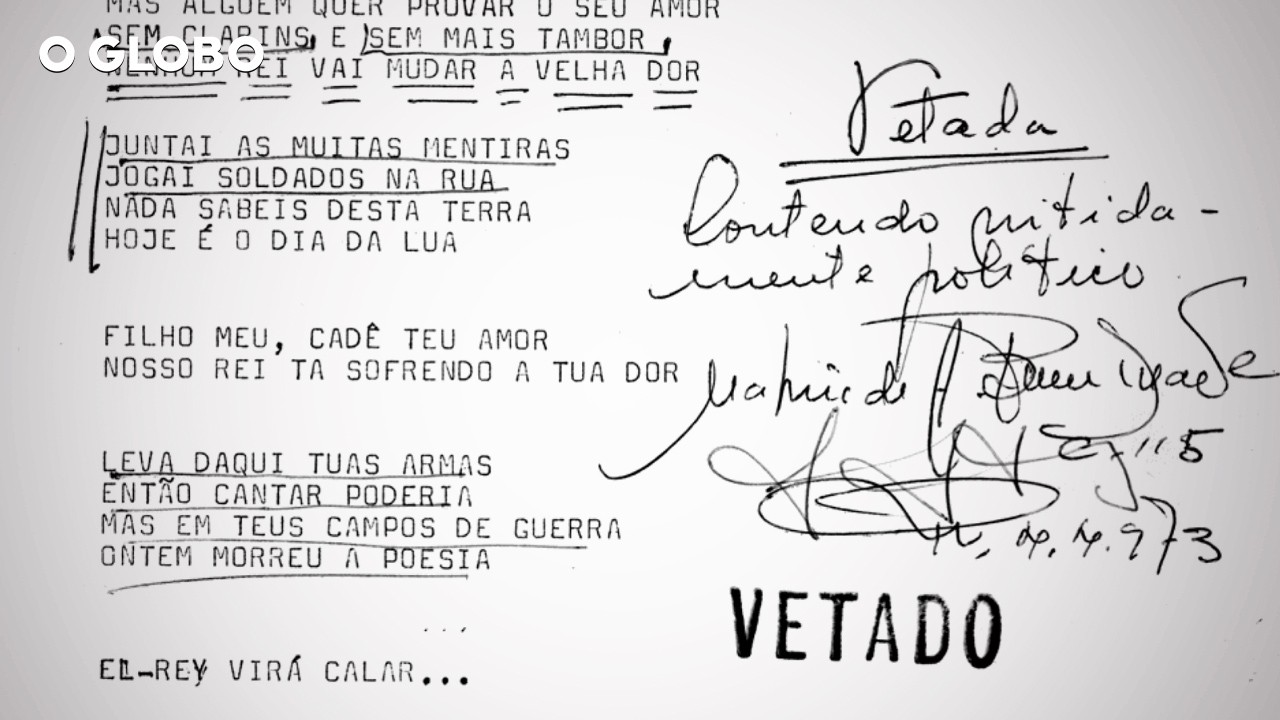 MAS ALGUÉM QUER PROVAR O SEU AMOR
SEM CLARINS, E SEM MAIS TAMBOR,
NENHUM REI VAI MUDAR A VELHA DOR
O GLOBO
JUNTAI AS MUITAS MENTIRAS
JOGAI SOLDADOS NA RUA
NADA SABEIS DESTA TERRA
HOJE É O DIA DA LUA
FILHO MEU, CADÊ TEU AMOR
NOSSO REI TA SOFRENDO A TUA DOR
LEVA DAQUI TUAS ARMAS
ENTÃO CANTAR PODERIA
MAS EM TEUS CAMPOS DE GUERRA
ONTEM MORREU A POESIA
...
EL-REY VIRÁ CALAR...
Vetada
Conteudo nitida-
mente politico
VETADO